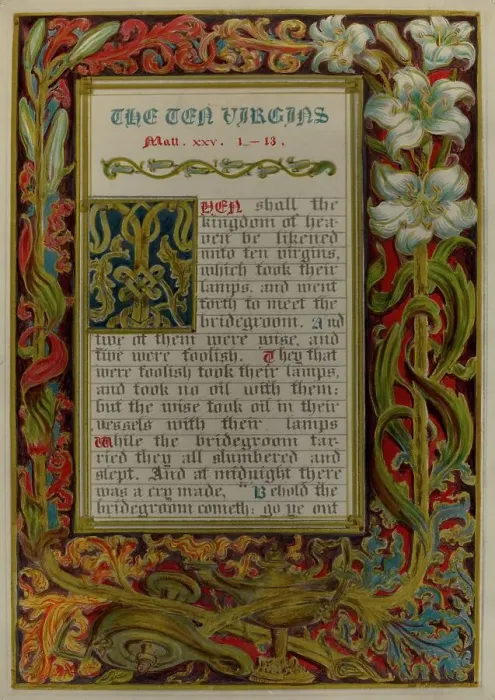 THE TEN VIRGINS
Matt. xxv. 1–13.
THEN shall the
kingdom of hea-
ven be likened
unto ten virgins,
which took their
lamps, and went
forth to meet the
bridegroom. And
five of them were wise, and
five were foolish. They that
were foolish took their lamps,
and took no oil with them:
but the wise took oil in their
vessels with their lamps
While the bridegroom tar-
ried they all slumbered and
slept. And at midnight there
was a cry made, "Behold the
bridegroom cometh: go ye out